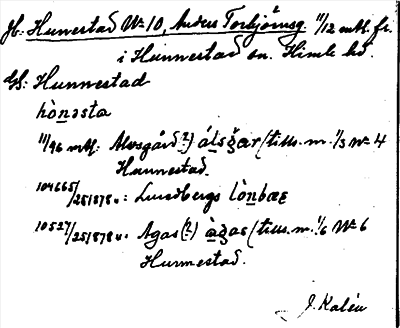 Jb: Hunnestad No 10, Anders Torbjörnsg. 11/12 mtl. fr.
i Hunnestad sn. Himle hd.
Gs: Hunnestad
hònəsta
11/96 mtl: Alvsgård(?) álsgær (tills. m. 1/3 No 4
Hunnestad.
104665/251878 u: Lundbergs lònbæs
10527/251878 u: Agas (?) àgas (tills. m. 1/6 No 6
Hunnestad.
J. Kalén